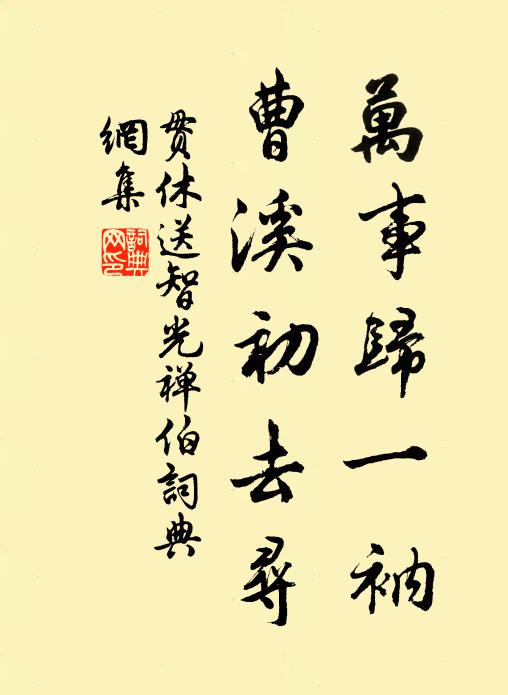 萬事歸一衲
曹溪初去尋
貫休送智光禅伯詞典
網集
詞典网印